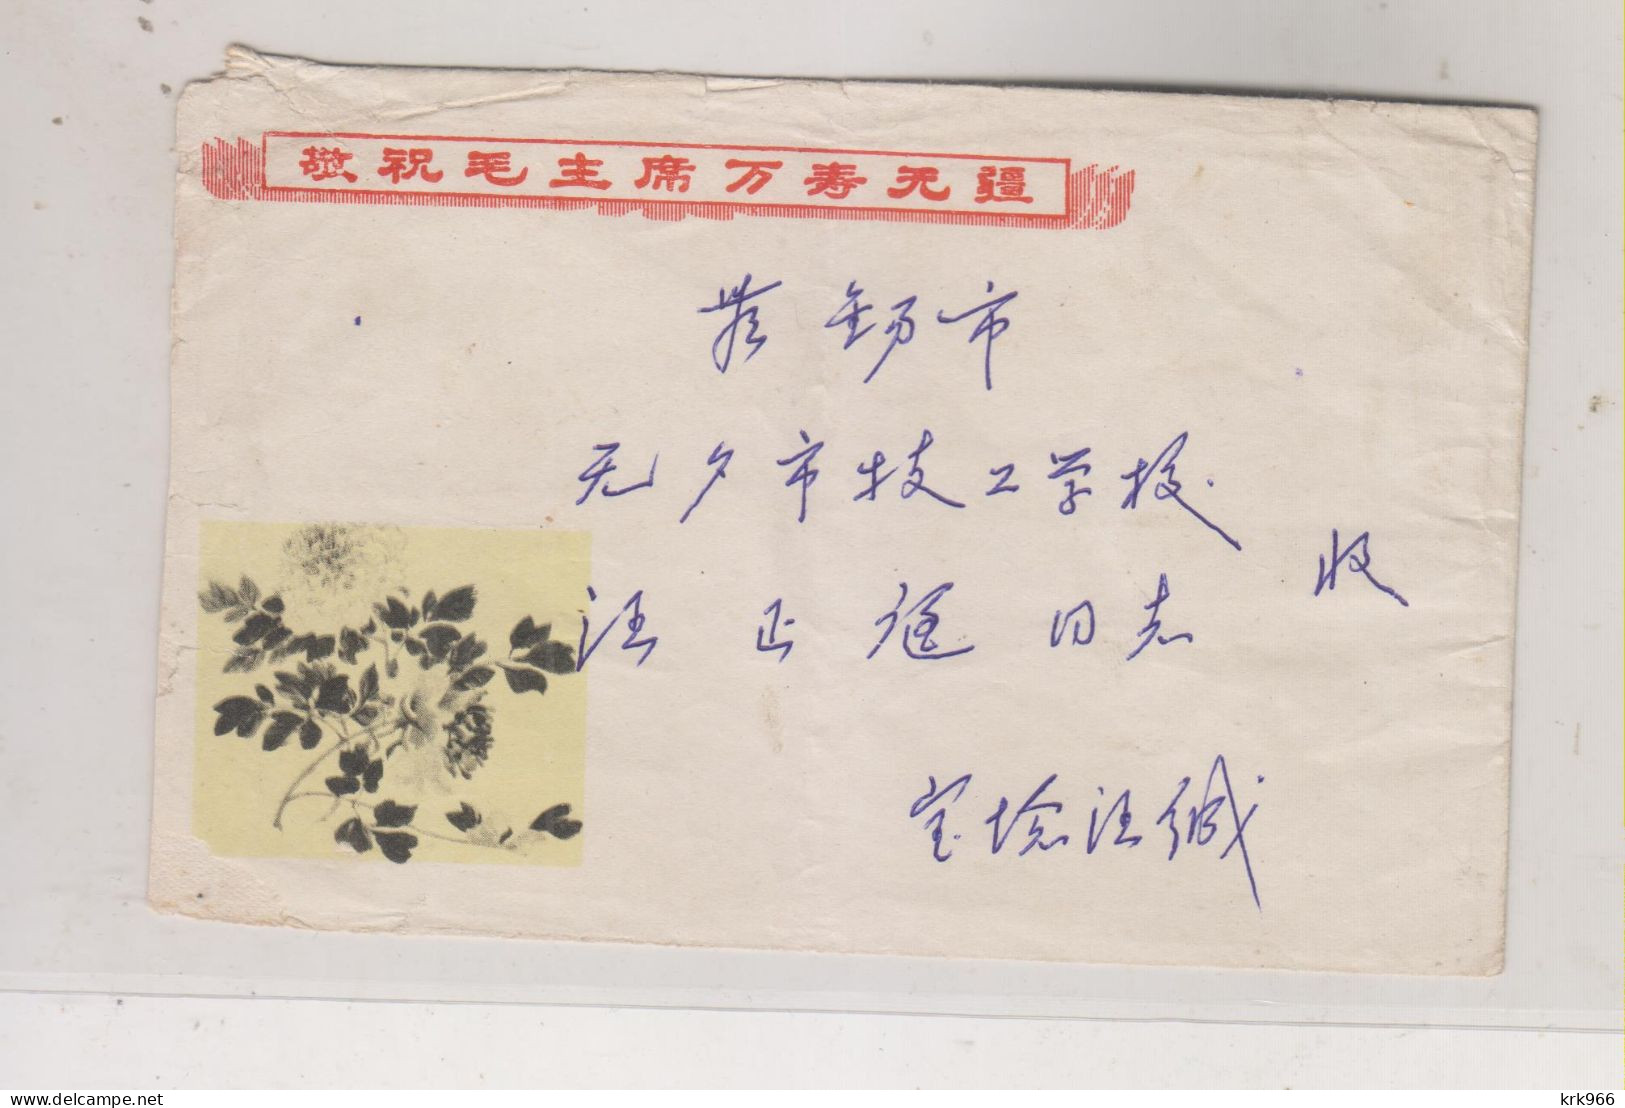 敬祝毛主席万寿无疆
锡市
无夕市技工学校.
汪正同志
收
汪缄
delcampe.net
krk966